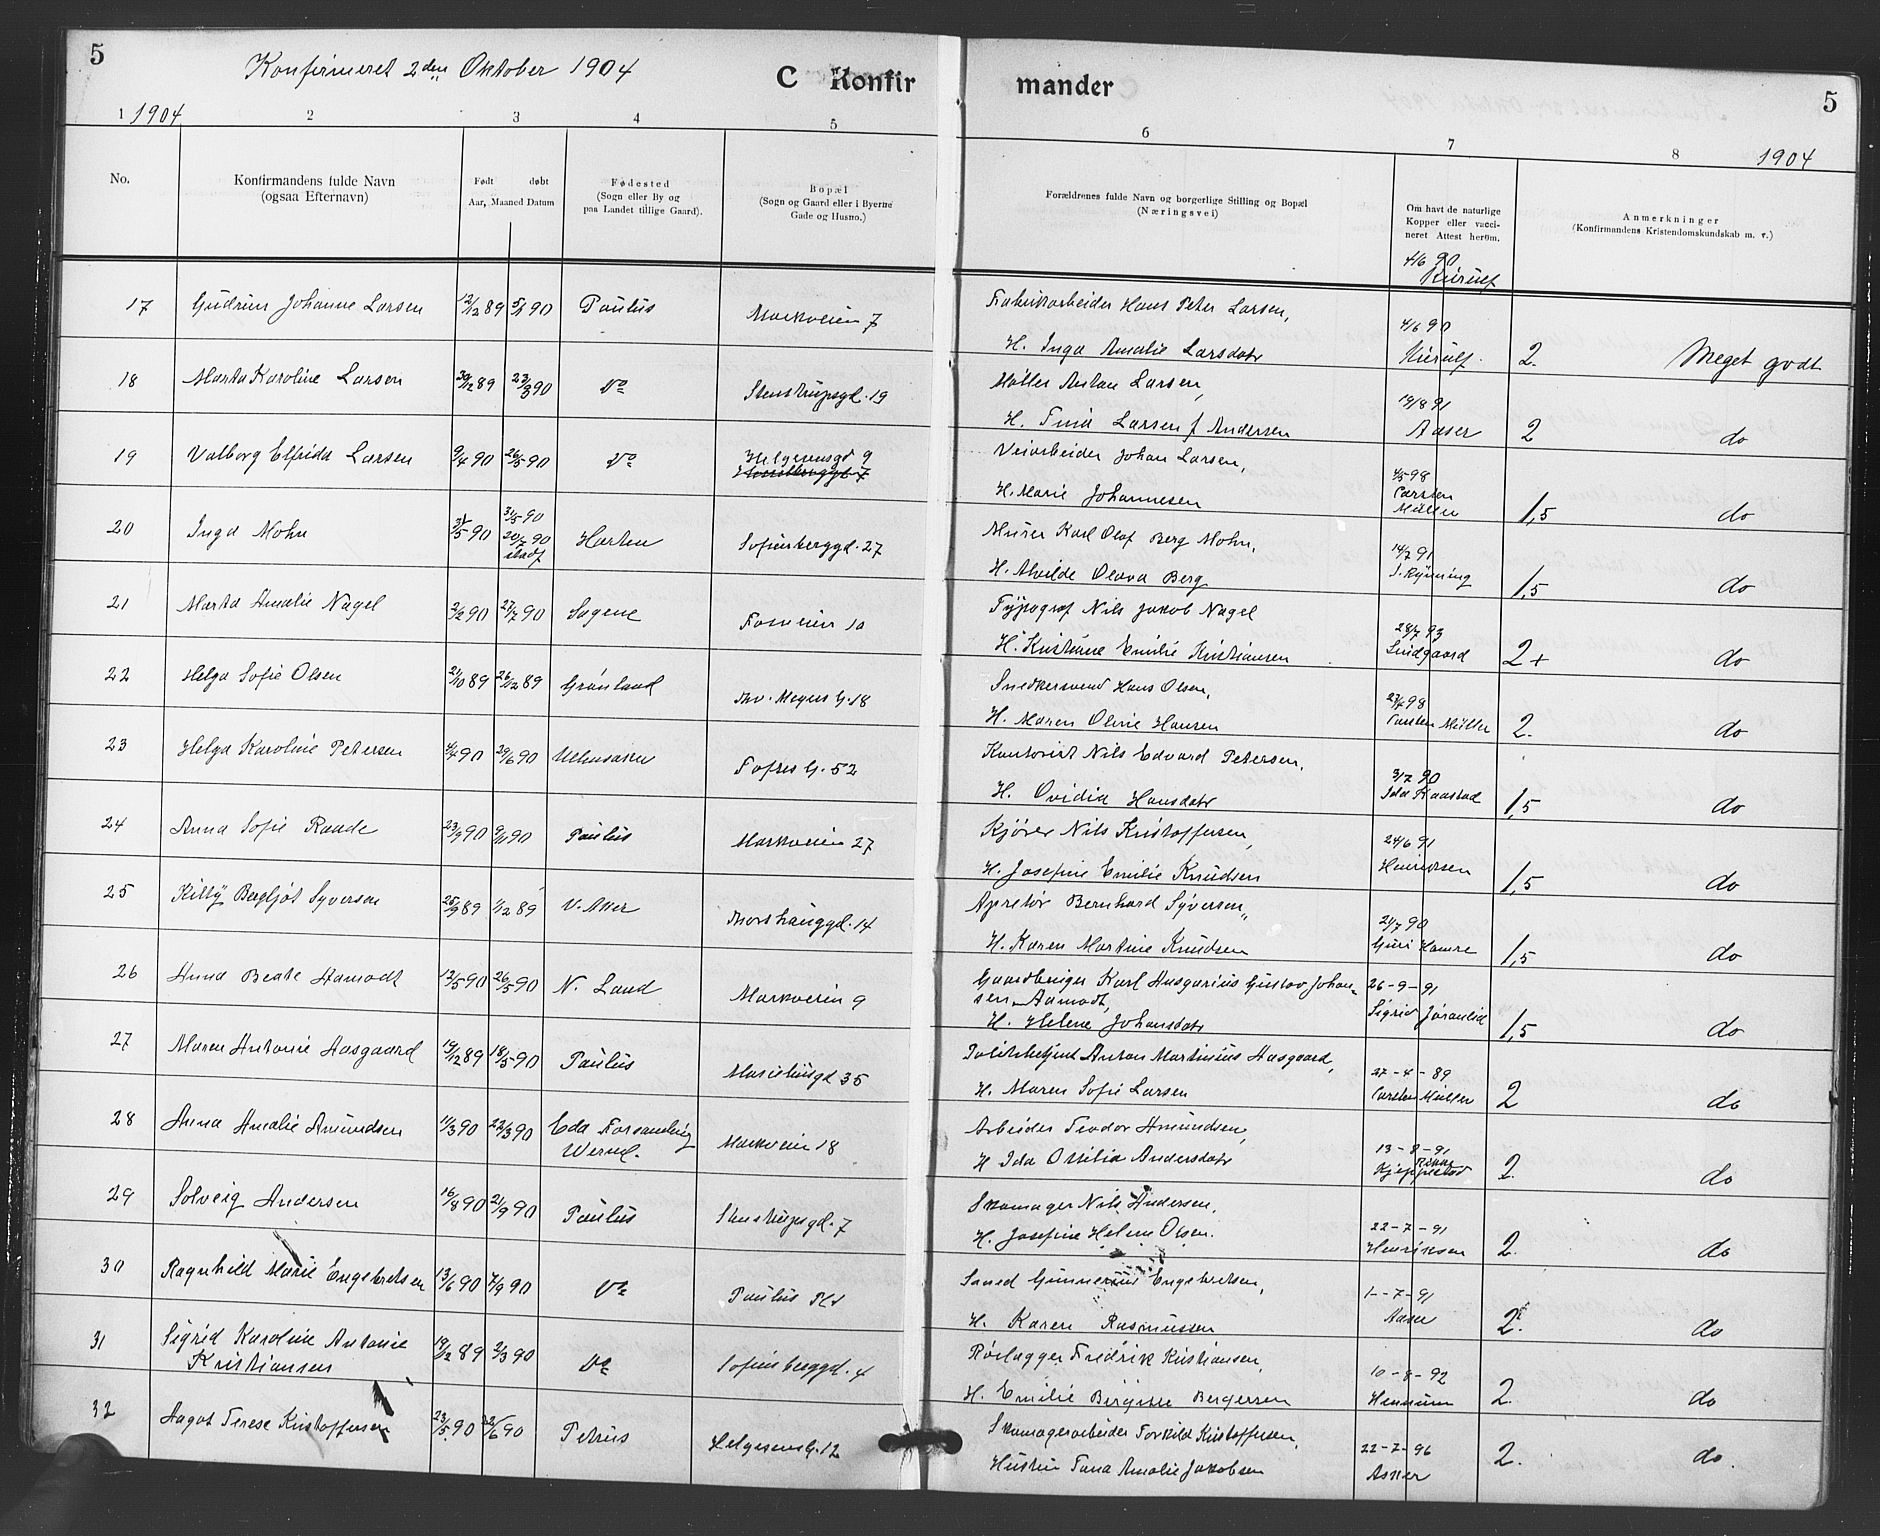 5
Konfirmeret 2den Oktober 1904
C Konfir mander
5
1 1904 2 3 4 5 6 7 8 1904
No.
Konfirmandens fulde Navn
(ogsaa Efternavn)
Født døbt
Aar, Maaned Datum
Fødested
(Sogn eller By og
paa Landet tillige Gaard).
Bopæl
(Sogn og Gaard eller i Byerne
Gade og Husno.)
Forældrenes fulde Navn og borgerlige Stilling og Bopæl
(Næringsvei)
Om havt de naturlige
Kopper eller vacci-
neret Attest herom.
Anmerkninger
(Konfirmandens Kristendomskundskab m. v.)
4/6 90
Kierulf
17 Gudrun Johanne Larsen 12/12 89 5/1 90 Paulus Markveien 7
Fabrikarbeider Hans Peter Larsen,
H. Inga Amalie Larsdatr
4/6 90
Kierulf. 2. Meget godt
18 Marta Karoline Larsen 30/12 89 23/3 90 Do Stenstrupsgd. 19
Møller Anton Larsen,
H. Tina Larsen f Andersen
19/8 91
Aaser 2 do
19 Valborg Elfrida Larsen 9/4 90 26/5 90 Do Helgesensgd 9
Veiarbeider Johan Larsen,
H. Marie Johannesen
4/5 98
Carsten
Müller 1,5 do
20 Inga Mohn 31/5 90 31/5 90
20/7 90
Horten Sofienberggd. 27
Murer Karl Olaf Berg Mohn,
H. Alvilde Olava Berg
14/7 91
1,5 do
21 Marta Amalie Nagel 2/2 90 27/7 90 Sagene Fosveien 10
Typograf Nils Jakob Nagel
H. Kristiane Emilie Kristiansen
28/7 93
Lindgaard 2+ do
22 Helga Sofie Olsen 21/10 89 26/12 89 Grønland Thv. Meyers G. 18
Snedkersvend Hans Olsen,
H. Maren Oline Hansen
27/4 98
Carsten Müller 2. do
23 Helga Karoline Petersen 4/4 90 29/6 90 Ullensaker Toftes G. 52
Kontorist Nils Edvard Petersen,
H. Ovidia Hansdatr
3/7 90
Ida Kaastad 1,5 do
24 Anna Sofie Raade 23/9 90 9/11 90 Paulus Markveien 27
Kjører Nils Kristoffersen,
H. Josefine Emilie Knudsen
24/6 91
Henriksen 1,5 do
25 Kitty Bergljot Syversen 25/9 89 1/12 89 V. Aker Thorshauggd. 14
Apretør Bernhard Syversen,
H. Karen Martine Knudsen
21/7 90
Guri Hamre 1,5 do
26 Anna Beate Aamodt 12/5 90 26/5 90 N. Land Markveien 9
Gaardbruger Karl Ansgarius Gustav Johan-
sen Aamodt,
H. Helene Johansdatr
26-9-91
Sigrid Joranlid 1,5 do
27 Maren Antonie Aasgaard 19/12 89 18/5 90 Paulus Marielundgd 35
Politibetjent Anton Martinius Aasgaard,
H. Maren Sofie Larsen
27-4-89
Carsten Müller 2 do
28 Anna Amalie Amundsen 11/3 90 23/3 90 Eda Forsamling
Wermel. Markveien 18
Arbeider Teodor Amundsen,
H Ida Otilia Andersdatr
13-8-91
Rikke
Kjeppestad 2. do
29 Solveig Andersen 16/8 90 21/9 90 Paulus Stenstrupsgd. 7
Skomager Nils Andersen,
H. Josefine Helene Olsen.
22-7-91
Henriksen 2. do
30 Ragnhild Marie Engebretsen 13/6 90 7/9 90 Do Paulus Pl.
Smed Gunnerius Engebretsen,
H. Karen Rasmussen
1-7-91
Aaser 2. do
31 Sigrid Karoline Antonie
Kristiansen 19/12 89 2/3 90 Do Sofienberggd. 4
Rørlægger Fredrik Kristiansen,
H. Emilie Birgitte Bergersen
10-8-92
Hennum 2. do
32 Aagot Terese Kristoffersen 23/5 90 22/6 90 Petrus Helgesens G. 12
Skomagerarbeider Torkild Kristoffersen,
Hustru Tana Amalie Jakobsen
22-7-96
Asker 2. do.